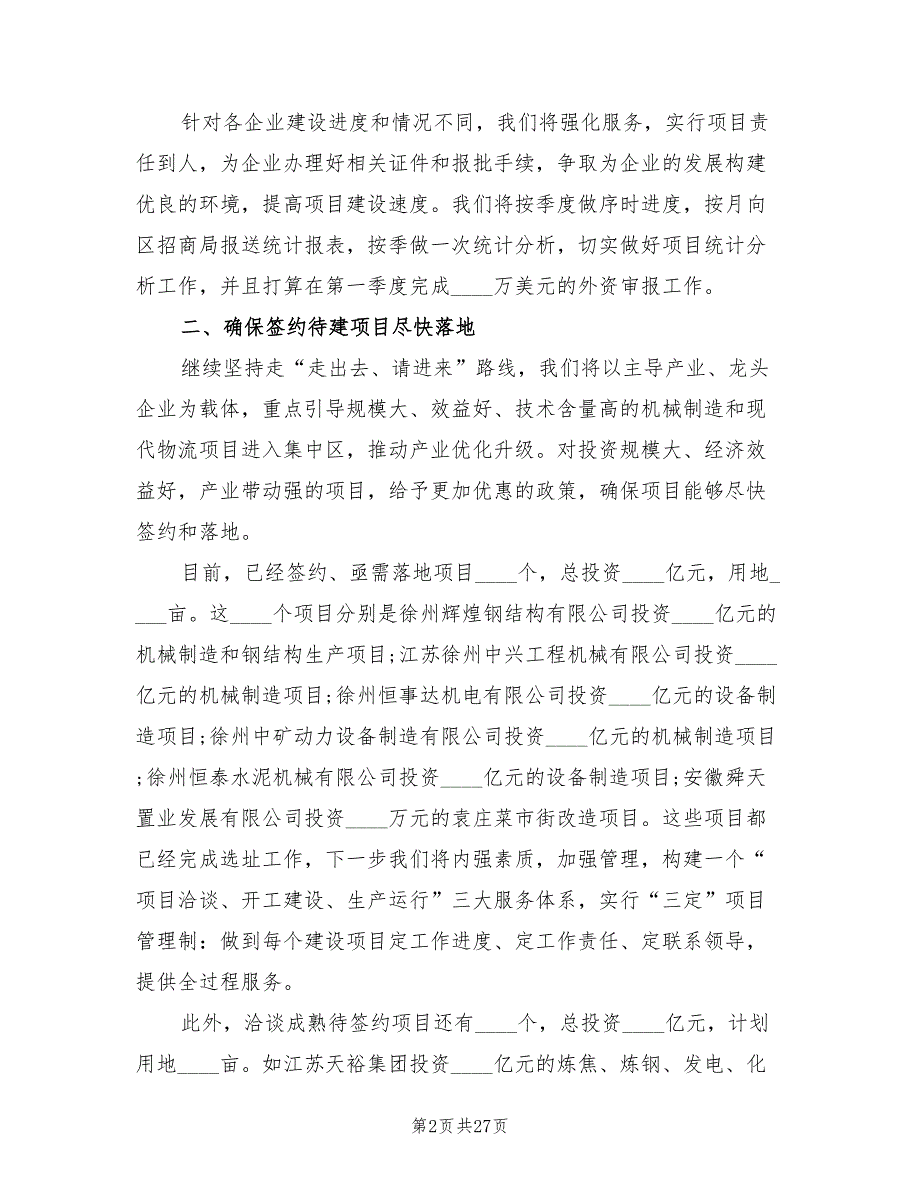 针对各企业建设进度和情况不同，我们将强化服务，实行项目责
任到人，为企业办理好相关证件和报批手续，争取为企业的发展构建
优良的环境，提高项目建设速度。我们将按季度做序时进度，按月向
区招商局报送统计报表，按季做一次统计分析，切实做好项目统计分
析工作，并且打算在第一季度完成____万美元的外资审报工作。
二、确保签约待建项目尽快落地
继续坚持走“走出去、请进来”路线，我们将以主导产业、龙头
企业为载体，重点引导规模大、效益好、技术含量高的机械制造和现
代物流项目进入集中区，推动产业优化升级。对投资规模大、经济效
益好，产业带动强的项目，给予更加优惠的政策，确保项目能够尽快
签约和落地。
目前，已经签约、亟需落地项目____个，总投资____亿元，用地_
___亩。这____个项目分别是徐州辉煌钢结构有限公司投资____亿元的
机械制造和钢结构生产项目;江苏徐州中兴工程机械有限公司投资____
亿元的机械制造项目;徐州恒事达机电有限公司投资____亿元的设备制
造项目;徐州中矿动力设备制造有限公司投资____亿元的机械制造项目
;徐州恒泰水泥机械有限公司投资____亿元的设备制造项目;安徽舜天
置业发展有限公司投资____万元的袁庄菜市街改造项目。这些项目都
已经完成选址工作，下一步我们将内强素质，加强管理，构建一个“
项目洽谈、开工建设、生产运行”三大服务体系，实行“三定”项目
管理制：做到每个建设项目定工作进度、定工作责任、定联系领导，
提供全过程服务。
此外，洽谈成熟待签约项目还有____个，总投资____亿元，计划
用地____亩。如江苏天裕集团投资____亿元的炼焦、炼钢、发电、化
第2页共27页